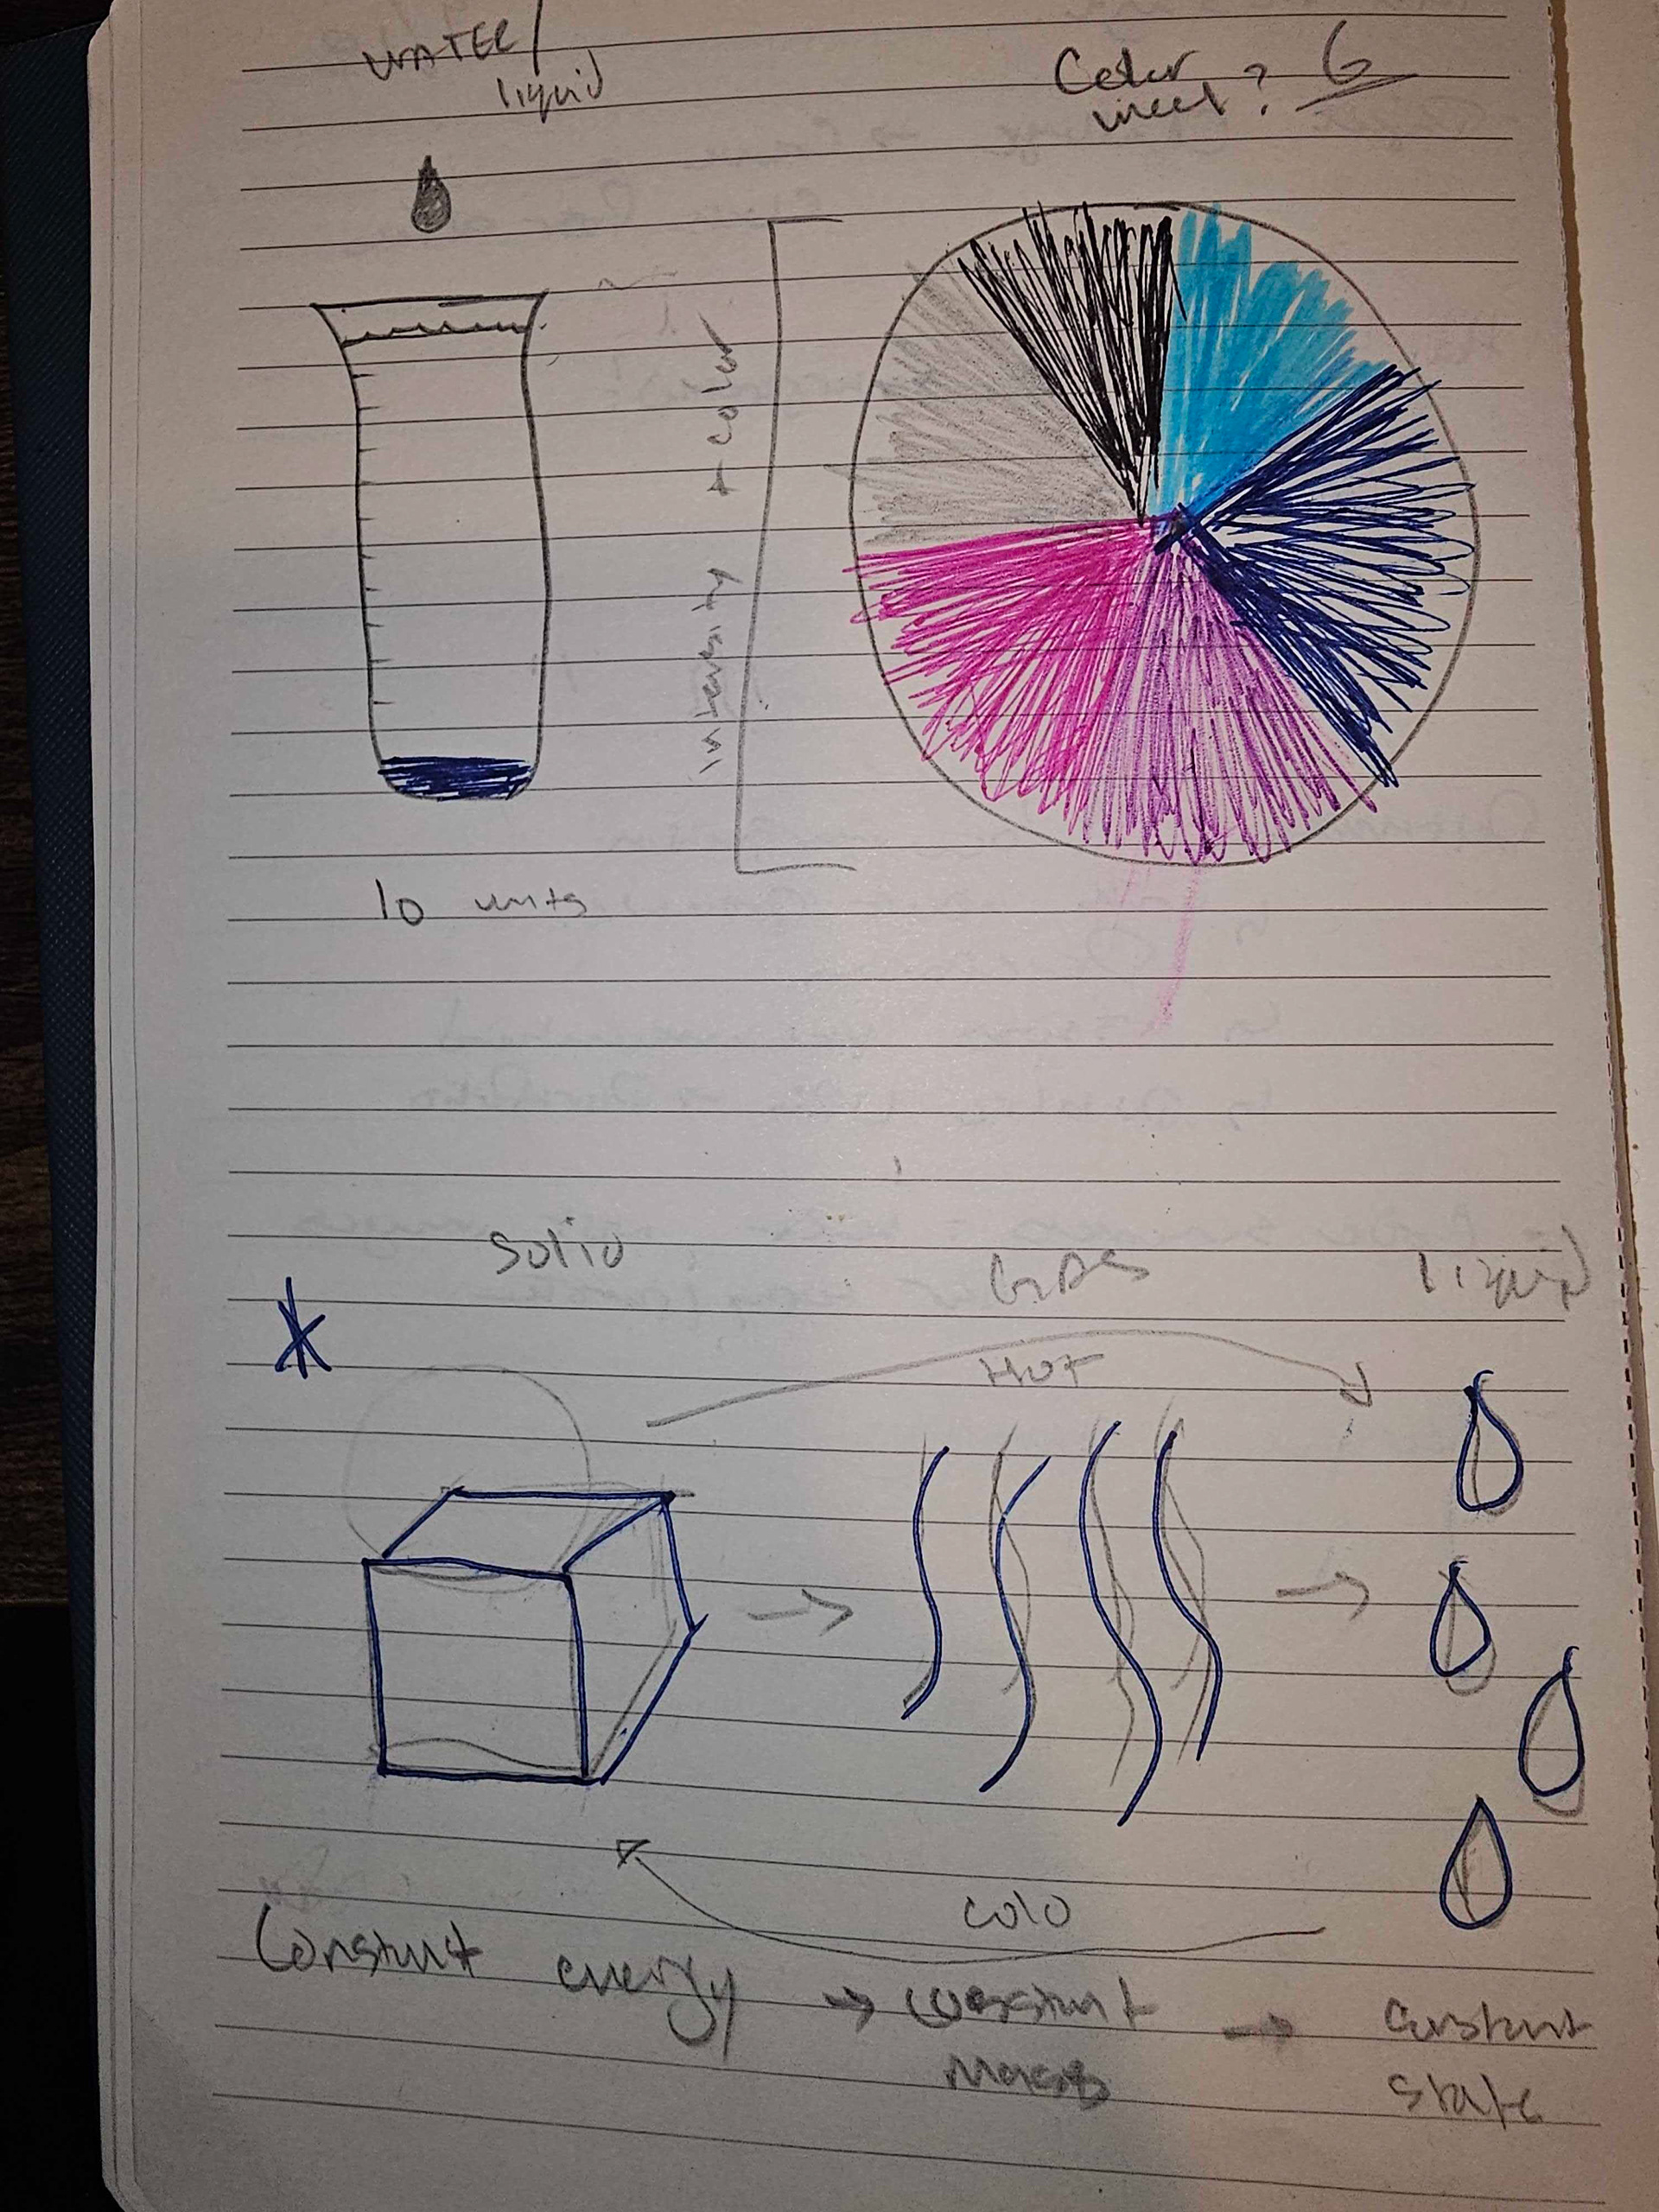 WATER/
liquid
Color
wheel? 6
intensity + color
10 units
Solid
GAS
liquid
HOT
cold
Constant energy → constant → constant
Mass
state